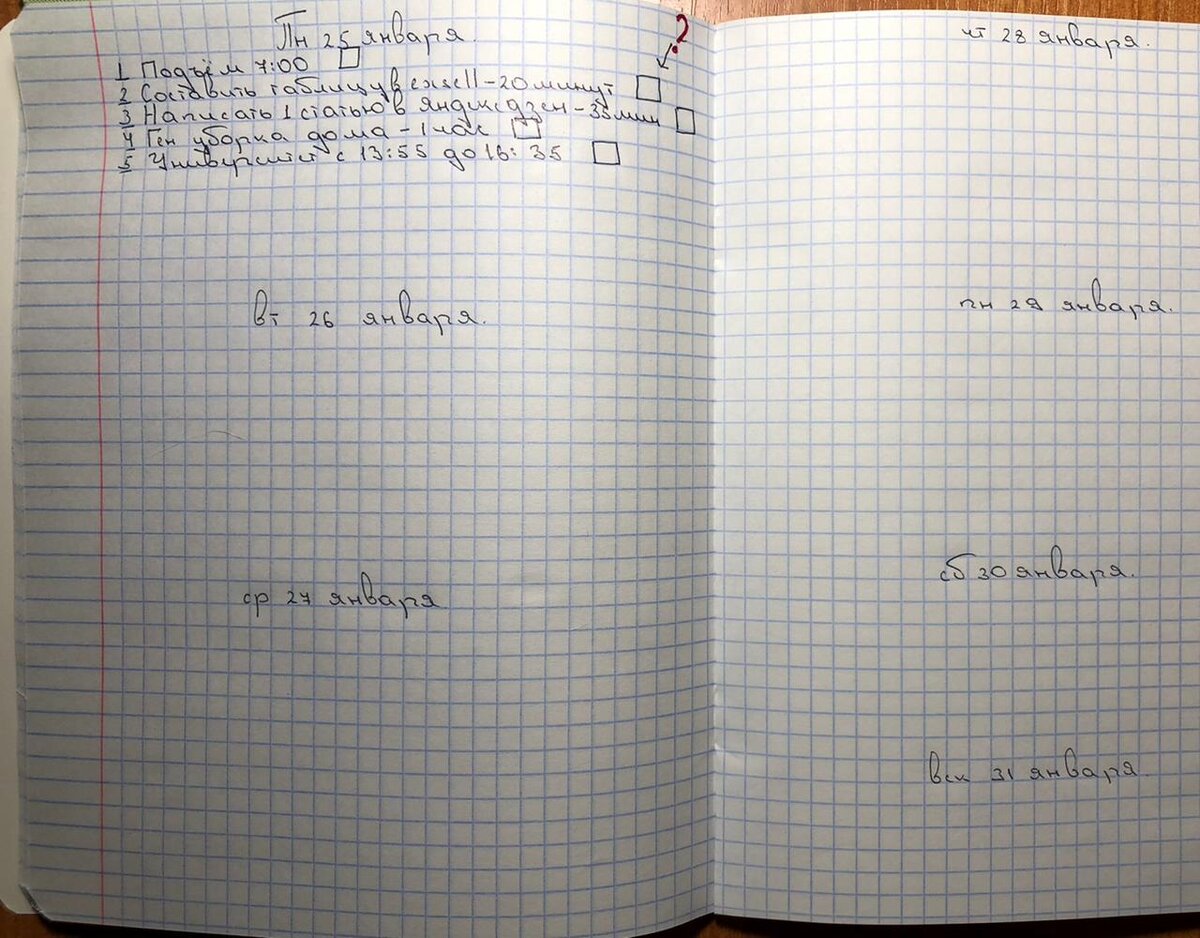 Пн 25 января.
?
1 Подъём 7:00
2 Составить таблицу в exsell - 20 минут
3 Написать 1 статью в яндексдзен - 35 мин
4 Ген уборка дома - 1 час
5 Университет с 13:55 до 16:35
вт 26 января.
ср 27 января
чт 28 января.
пн 29 января.
сб 30 января.
вск 31 января.